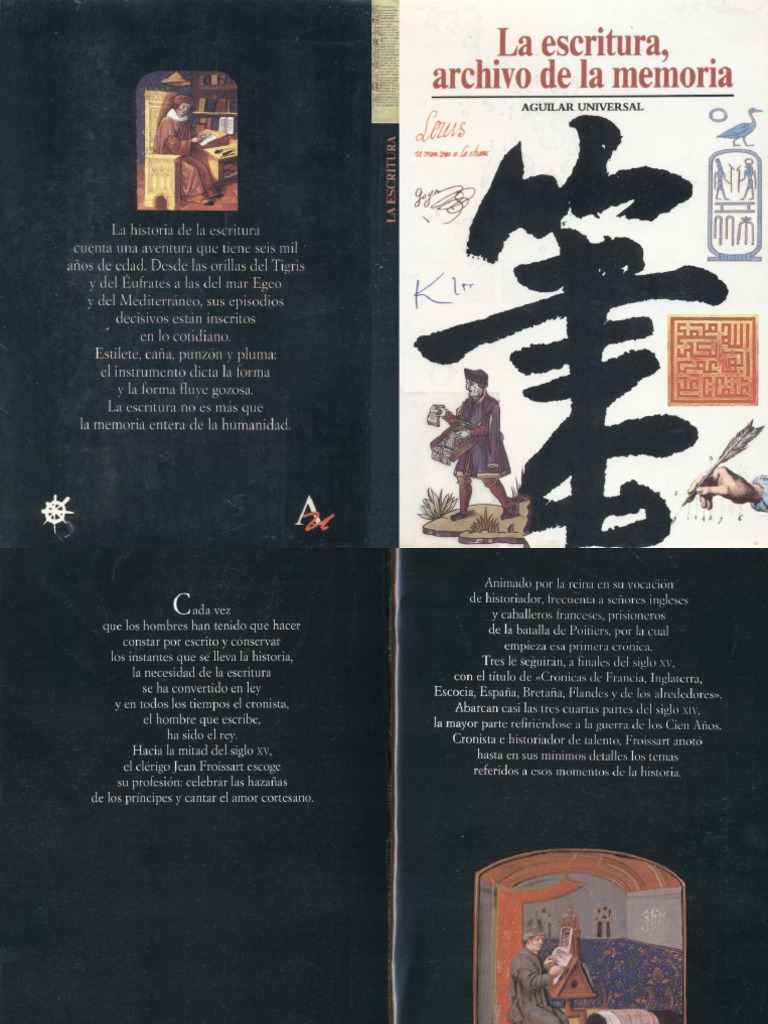 La historia de la escritura
cuenta una aventura que tiene seis mil
años de edad. Desde las orillas del Tigris
y del Éufrates a las del mar Egeo
y del Mediterráneo, sus episodios
decisivos están inscritos
en lo cotidiano.
Estilete, caña, punzón y pluma:
el instrumento dicta la forma
y la forma fluye gozosa.
La escritura no es más que
la memoria entera de la humanidad.
Au
LA ESCRITURA
La escritura,
archivo de la memoria
AGUILAR UNIVERSAL
Louis
goya
書
Cada vez
que los hombres han tenido que hacer
constar por escrito y conservar
los instantes que se lleva la historia,
la necesidad de la escritura
se ha convertido en ley
y en todos los tiempos el cronista,
el hombre que escribe,
ha sido el rey.
Hacia la mitad del siglo XV,
el clérigo Jean Froissart escoge
su profesión: celebrar las hazañas
de los príncipes y cantar el amor cortesano.
Animado por la reina en su vocación
de historiador, frecuenta a señores ingleses
y caballeros franceses, prisioneros
de la batalla de Poitiers, por la cual
empieza esa primera crónica.
Tres le seguirán, a finales del siglo XV,
con el título de «Crónicas de Francia, Inglaterra,
Escocia, España, Bretaña, Flandes y de los alrededores».
Abarcan casi las tres cuartas partes del siglo XIV,
la mayor parte refiriéndose a la guerra de los Cien Años.
Cronista e historiador de talento, Froissart anotó
hasta en sus mínimos detalles los temas
referidos a esos momentos de la historia.